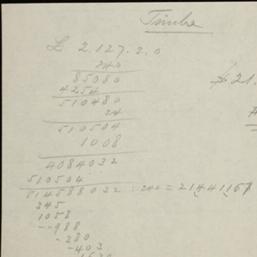 Timbre
£ 2.127.2.0
240
85080
4254
510480
24
510504
1008
4084032
510504
514588032 : 240 = 21441167
345
1058
--988
-280
-403